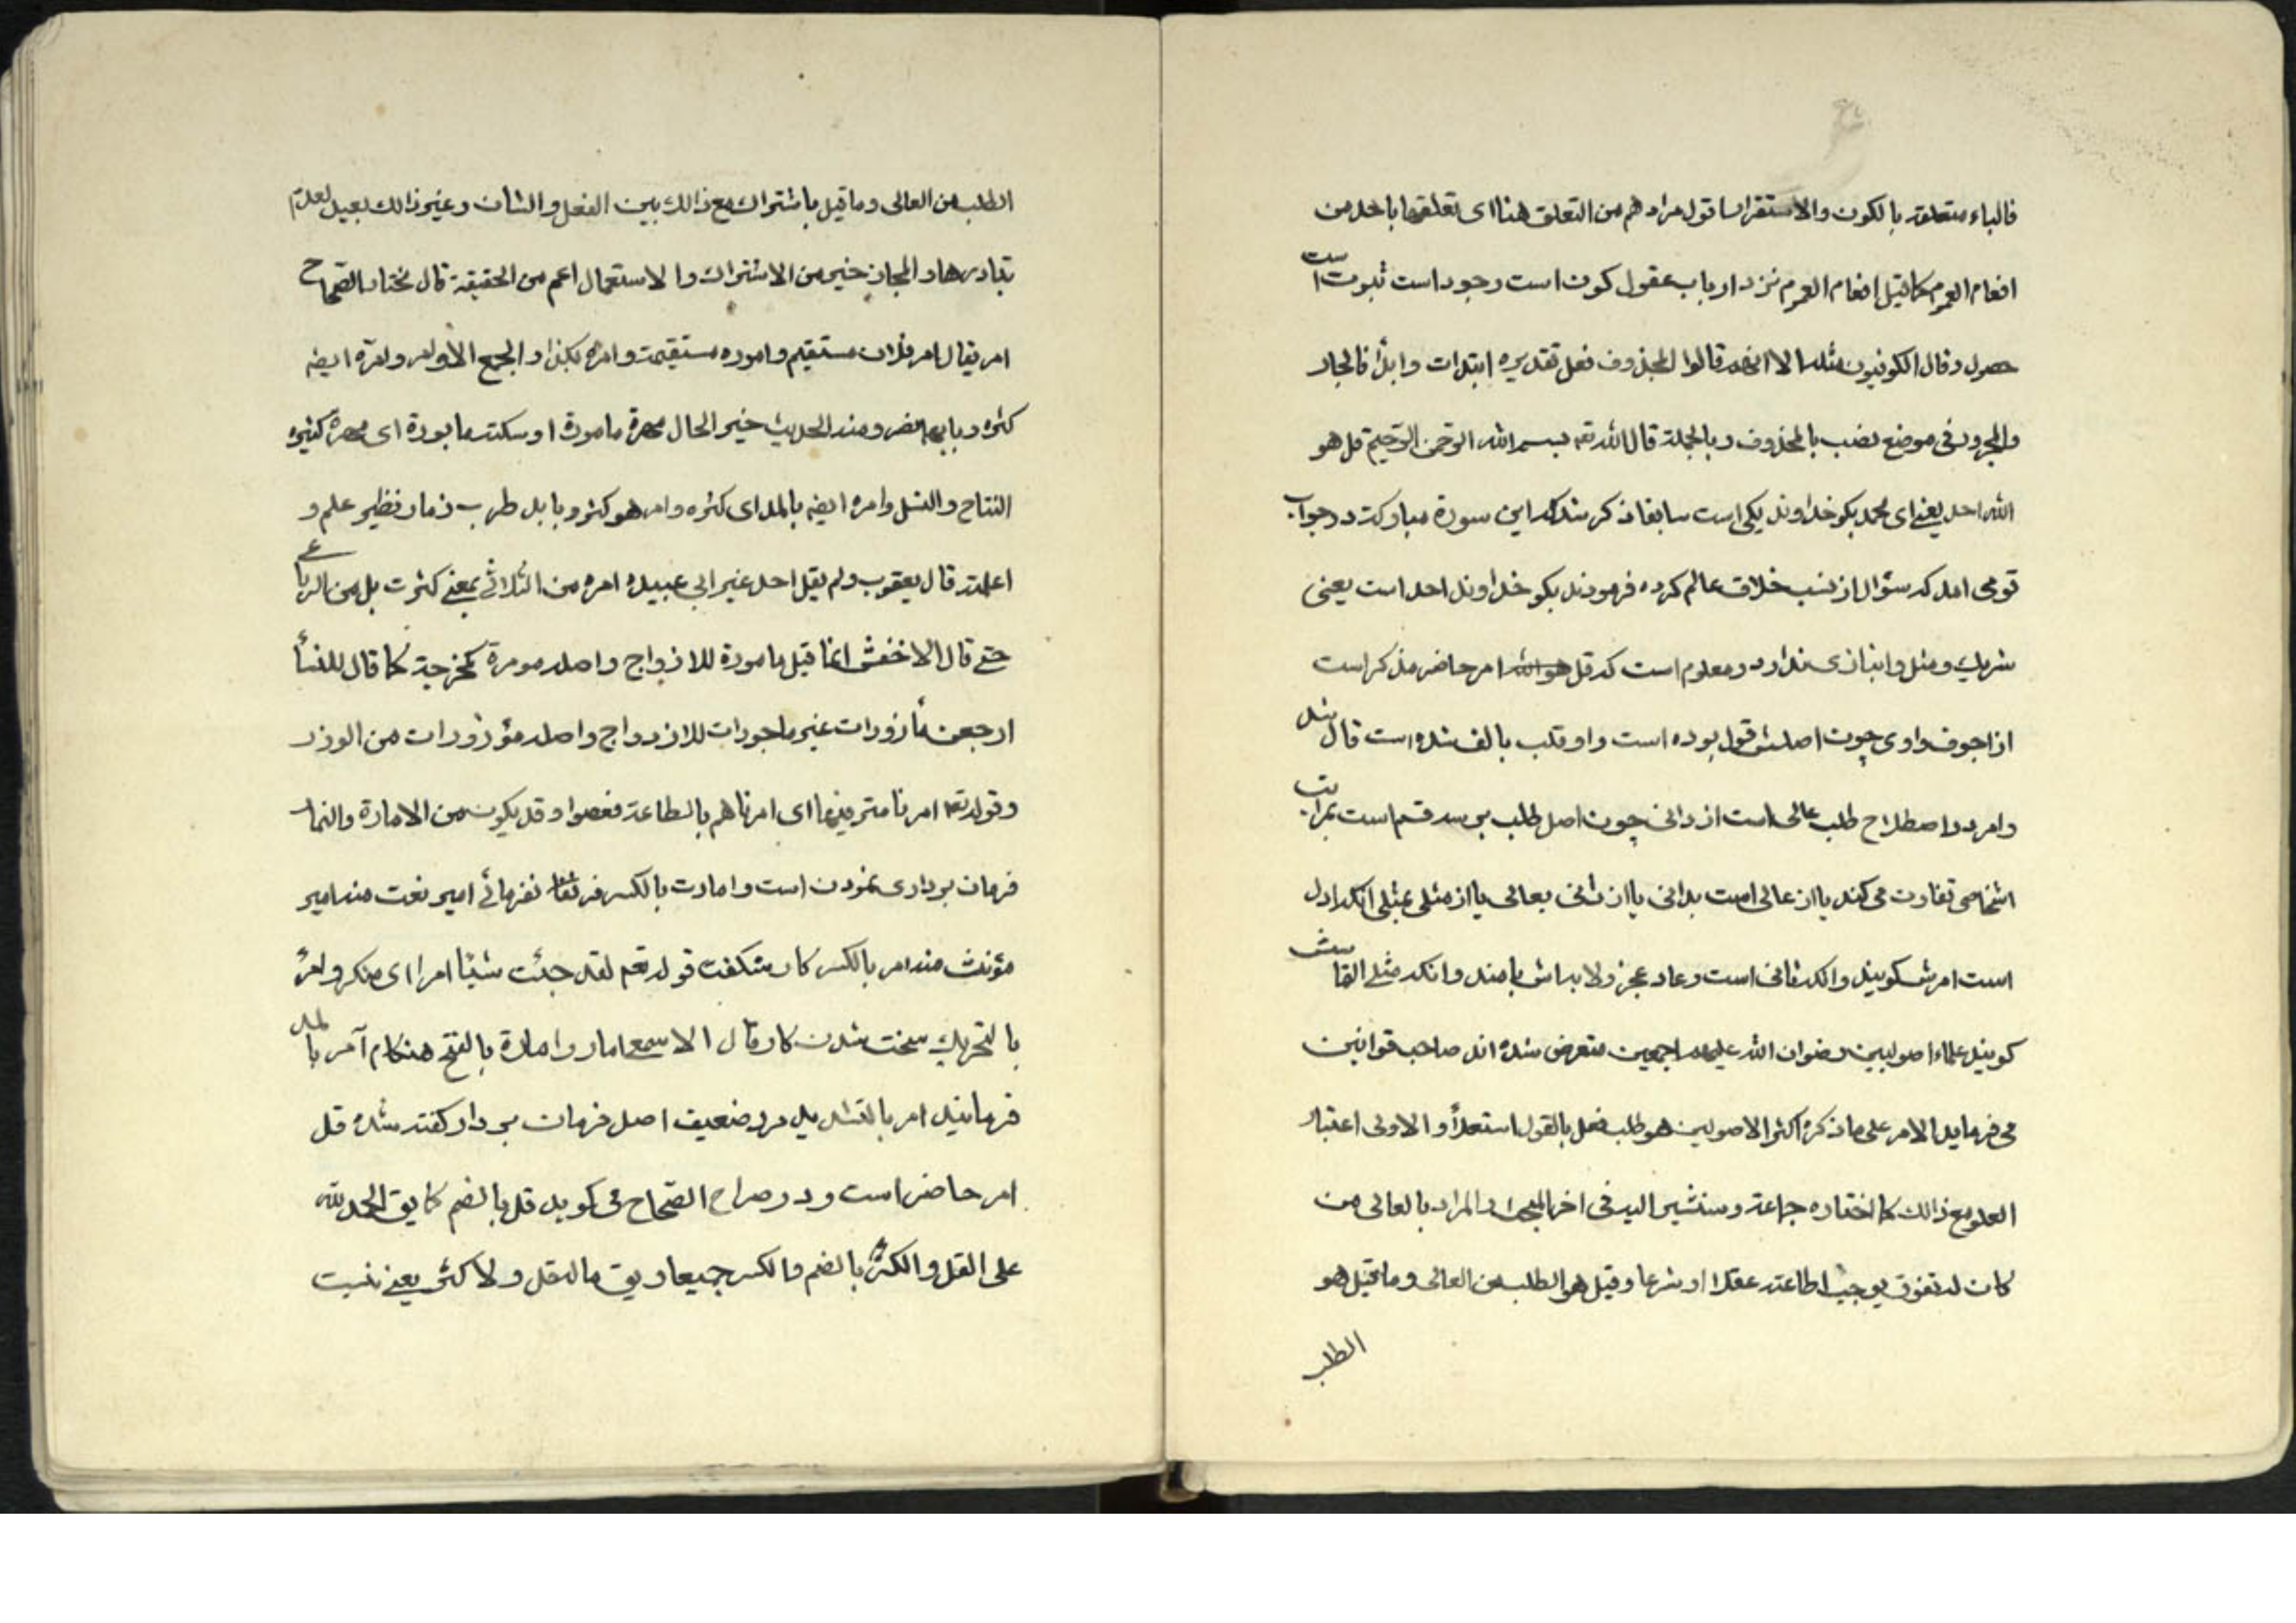 فالباء متعلقة بالکون والاستقرار اقول مرادهم من التعلق هنا ای تعلقها باحد من
افعام العموم کما قیل افعام العموم نزد ارباب عقول کون است وجود است ثبوت است
حصول وقال الکوفیون مثله الا انهم قالوا المحذوف فعل تقدیره ابتدات وابدأ فالجار
والمجرور فی موضع نصب بالمحذوف وبالجملة قال الله تعه بسم الله الرحمن الرحیم قل هو
الله احد یعنی ای محمد بکو خداوند یکی است سابقا ذکر شد که این سوره مبارکه در جواب
قومی امد که سؤال از نسب خلاق عالم کرده فرمودند بکو خداوند احد است یعنی
شریک و مثل و انبازی ندارد و معلوم است که قل هو الله امر حاضر مذکر است
از اجوف واوی چون اصلش قول بوده است واو قلب بالف شده است قال شد
وامر در اصطلاح طلب عالی است از دانی چون اصل طلب بر سه قسم است بمراتب
اشخاصی تفاوت می کند یا از عالی است بدانی یا از دانی بعالی یا از مثلی بمثلی انکه اول
است امرش کویند وانکه ثانی است دعا و عجز ولابه اش نامند وانکه مثلی التماسش
کویند علماء اصولیین رضوان الله علیهم اجمعین متعرض شده اند صاحب قوانین
می فرماید الامر علی ما ذکره اکثر الاصولیین هو طلب فعل بالقول استعلاءً والاولی اعتبار
العلو مع ذالک کما اختاره جماعة وسنشیر الیه فی اخر المبحث والمراد بالعالی من
کان له تفوق یوجب اطاعته عقلا او شرعا وقیل هو الطلب من العالی وما قیل هو
الطلب
الطلب من العالی وما قیل باشتراک مع ذالک بین الفعل والشان وغیر ذالک بعید لعدم
تبادرها والمجاز خیر من الاشتراک والاستعمال اعم من الحقیقة قال مختار الصحاح
امر یقال امر فلان مستقیم واموره مستقیمة وامره بکذا والجمع الاوامر وامره ایضه
کثره وبابهما نصر ومنه الحدیث خیر المال مهرة مامورة او سکة مابورة ای مهرة کثیرة
النتاج والنسل وامره ایضه بالمد ای کثره وامر هو کثر وبابه طرب فصار نظیر علم و
اعلمته قال یعقوب ولم یقل احد غیر ابی عبیده امره من الثلاثی بمعنی کثرت بل من الرباعی
حتی قال الاخفش انما قیل مامورة للازدواج واصله مومرة کمخرجة کما قال للنسأ
ارجعن مأزورات غیر ماجورات للازدواج واصله مؤزورات من الوزر
وقوله تعه امرنا مترفیها ای امرناهم بالطاعة فعصوا وقد یکون من الامارة والنمار
فرمان برداری نمودن است وامارت بالکسر فریقا نفرمائی امیر نعت منه امیر
مؤنث منه امر بالکسر کار شکفت قوله تعم لقد جئت شیئا امرا ای منکر وامرً
بالتحریک سخت شدن کار وقال الاسمع امار وامارة بالفتح هنکام آمر بالمد
فرمانبد امر بالتشدید مرد ضعیف اصل فرمان بردار کفته شده قل
امر حاضر است ودر صراح الصحاح می کوید قل بالضم کما یق الحمد لله
علی القل والکثر بالضم والکسر جمیعا ویق ماله قل ولا کثر یعنی نیست